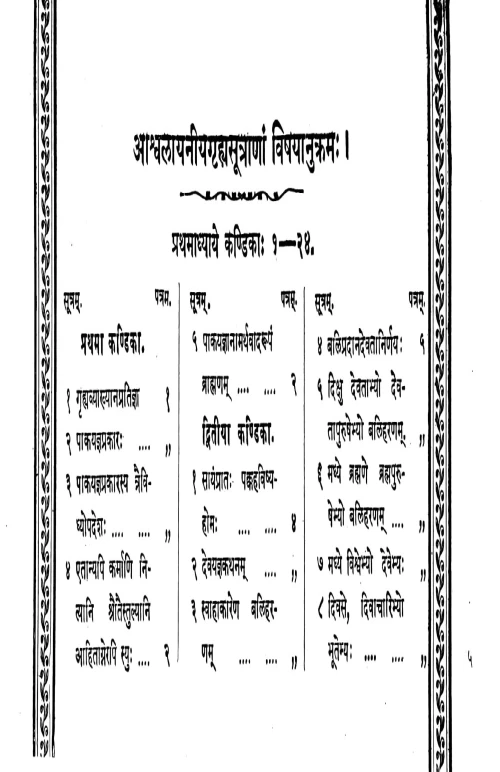 आश्वलायनीयगृह्यसूत्राणां विषयानुक्रमः।
प्रथमाध्याये कण्डिकाः १—२४.
सूत्रम्. पत्रम्.
प्रथमा कण्डिका.
१ गृह्यव्याख्यानप्रतिज्ञा १
२ पाकयज्ञप्रकारः .... ,,
३ पाकयज्ञप्रकारस्य त्रैवि-
ध्योपदेशः .... .... ,,
४ एतान्यपि कर्माणि नि-
त्यानि श्रौतैस्तुल्यानि
आहिताग्नेरपि स्युः .... २
सूत्रम्. पत्रम्.
५ पाकयज्ञानामर्थवादरूपं
ब्राह्मणम् .... .... २
द्वितीया कण्डिका.
१ सायंप्रातः पक्वहविष्य-
होमः .... .... ४
२ देवयज्ञकथनम् .... ,,
३ स्वाहाकारेण बलिहर-
णम् .... .... .... ,,
सूत्रम्. पत्रम्.
४ बलिप्रदानदेवतानिर्णयः ५
५ दिक्षु देवताभ्यो देव-
तापुरुषेभ्यो बलिहरणम्. ,,
६ मध्ये ब्रह्मणे ब्रह्मपुरु-
षेभ्यो बलिहरणम् .... ,,
७ मध्ये विश्वेभ्यो देवेभ्यः ,,
८ दिवसे, दिवाचारिभ्यो
भूतेभ्यः .... .... .... ,,
५